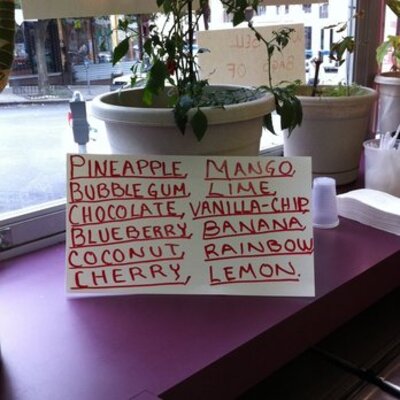 PINEAPPLE, MANGO,
BUBBLEGUM, LIME,
CHOCOLATE, VANILLA-CHIP
BLUEBERRY, BANANA
COCONUT, RAINBOW
CHERRY, LEMON.